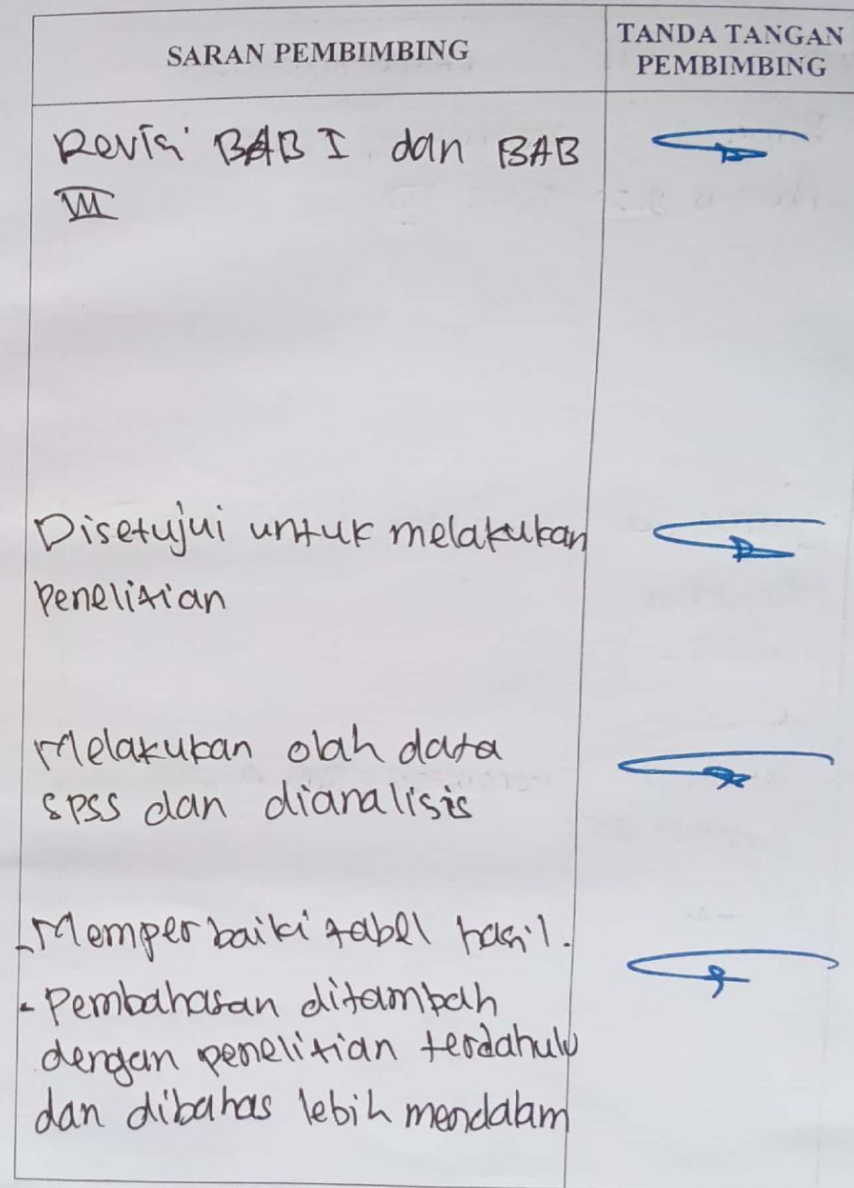 SARAN PEMBIMBING
TANDA TANGAN
PEMBIMBING
Revisi BAB I dan BAB
III
Disetujui untuk melakukan
penelitian
Melakukan olah data
SPSS dan dianalisis
- Memperbaiki tabel hasil.
- Pembahasan ditambah
dengan penelitian terdahulu
dan dibahas lebih mendalam